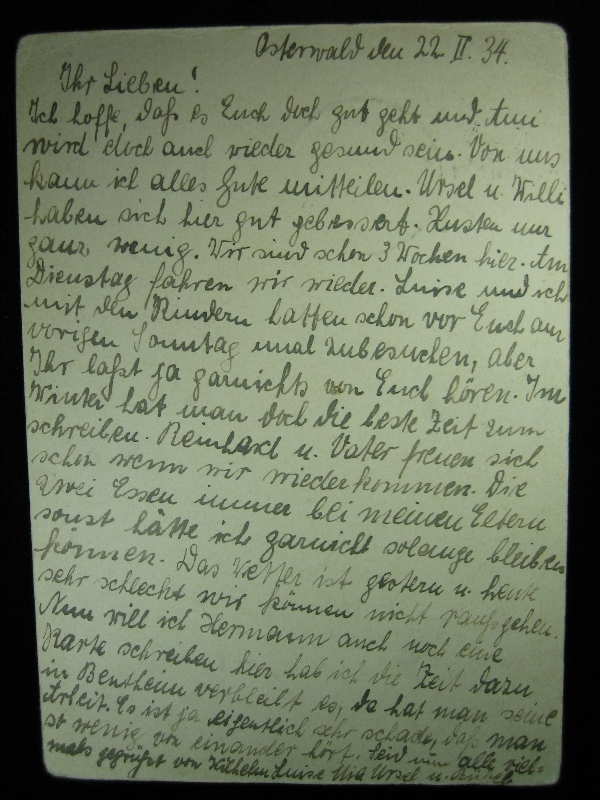 Osterwald den 22. II. 34.
Ihr Lieben!
Ich hoffe, daß es Euch doch gut geht und
wird doch auch wieder gesund sein. Von uns
kann ich alles Gute mitteilen. Ursel u. Willi
haben sich hier gut gebessert. Husten nur
ganz wenig. Wir sind schon 3 Wochen hier. Am
Dienstag fahren wir wieder. Luise und ich
mit den Kindern hatten schon vor Euch am
vorigen Sonntag mal zubesuchen, aber
Ihr laßt ja garnichts von Euch hören. Im
Winter hat man doch die beste Zeit zum
schreiben. Reinhard u. Vater freuen sich
schon wenn wir wiederkommen. Die
zwei Essen immer bei meinen Eltern
sonst hätte ich garnicht solange bleiben
können. Das Wetter ist gestern u. heute
sehr schlecht wir können nicht raußgehen.
Nun will ich Hermann auch noch eine
Karte schreiben hier hab ich die Zeit dazu
in Bentheim verbleibt es, da hat man seine
Arbeit. Es ist ja eigentlich sehr schade, daß man
so wenig von einander hört. Seid nun alle viel-
mals gegrüßt von Wilhelm Luise Ursel u.